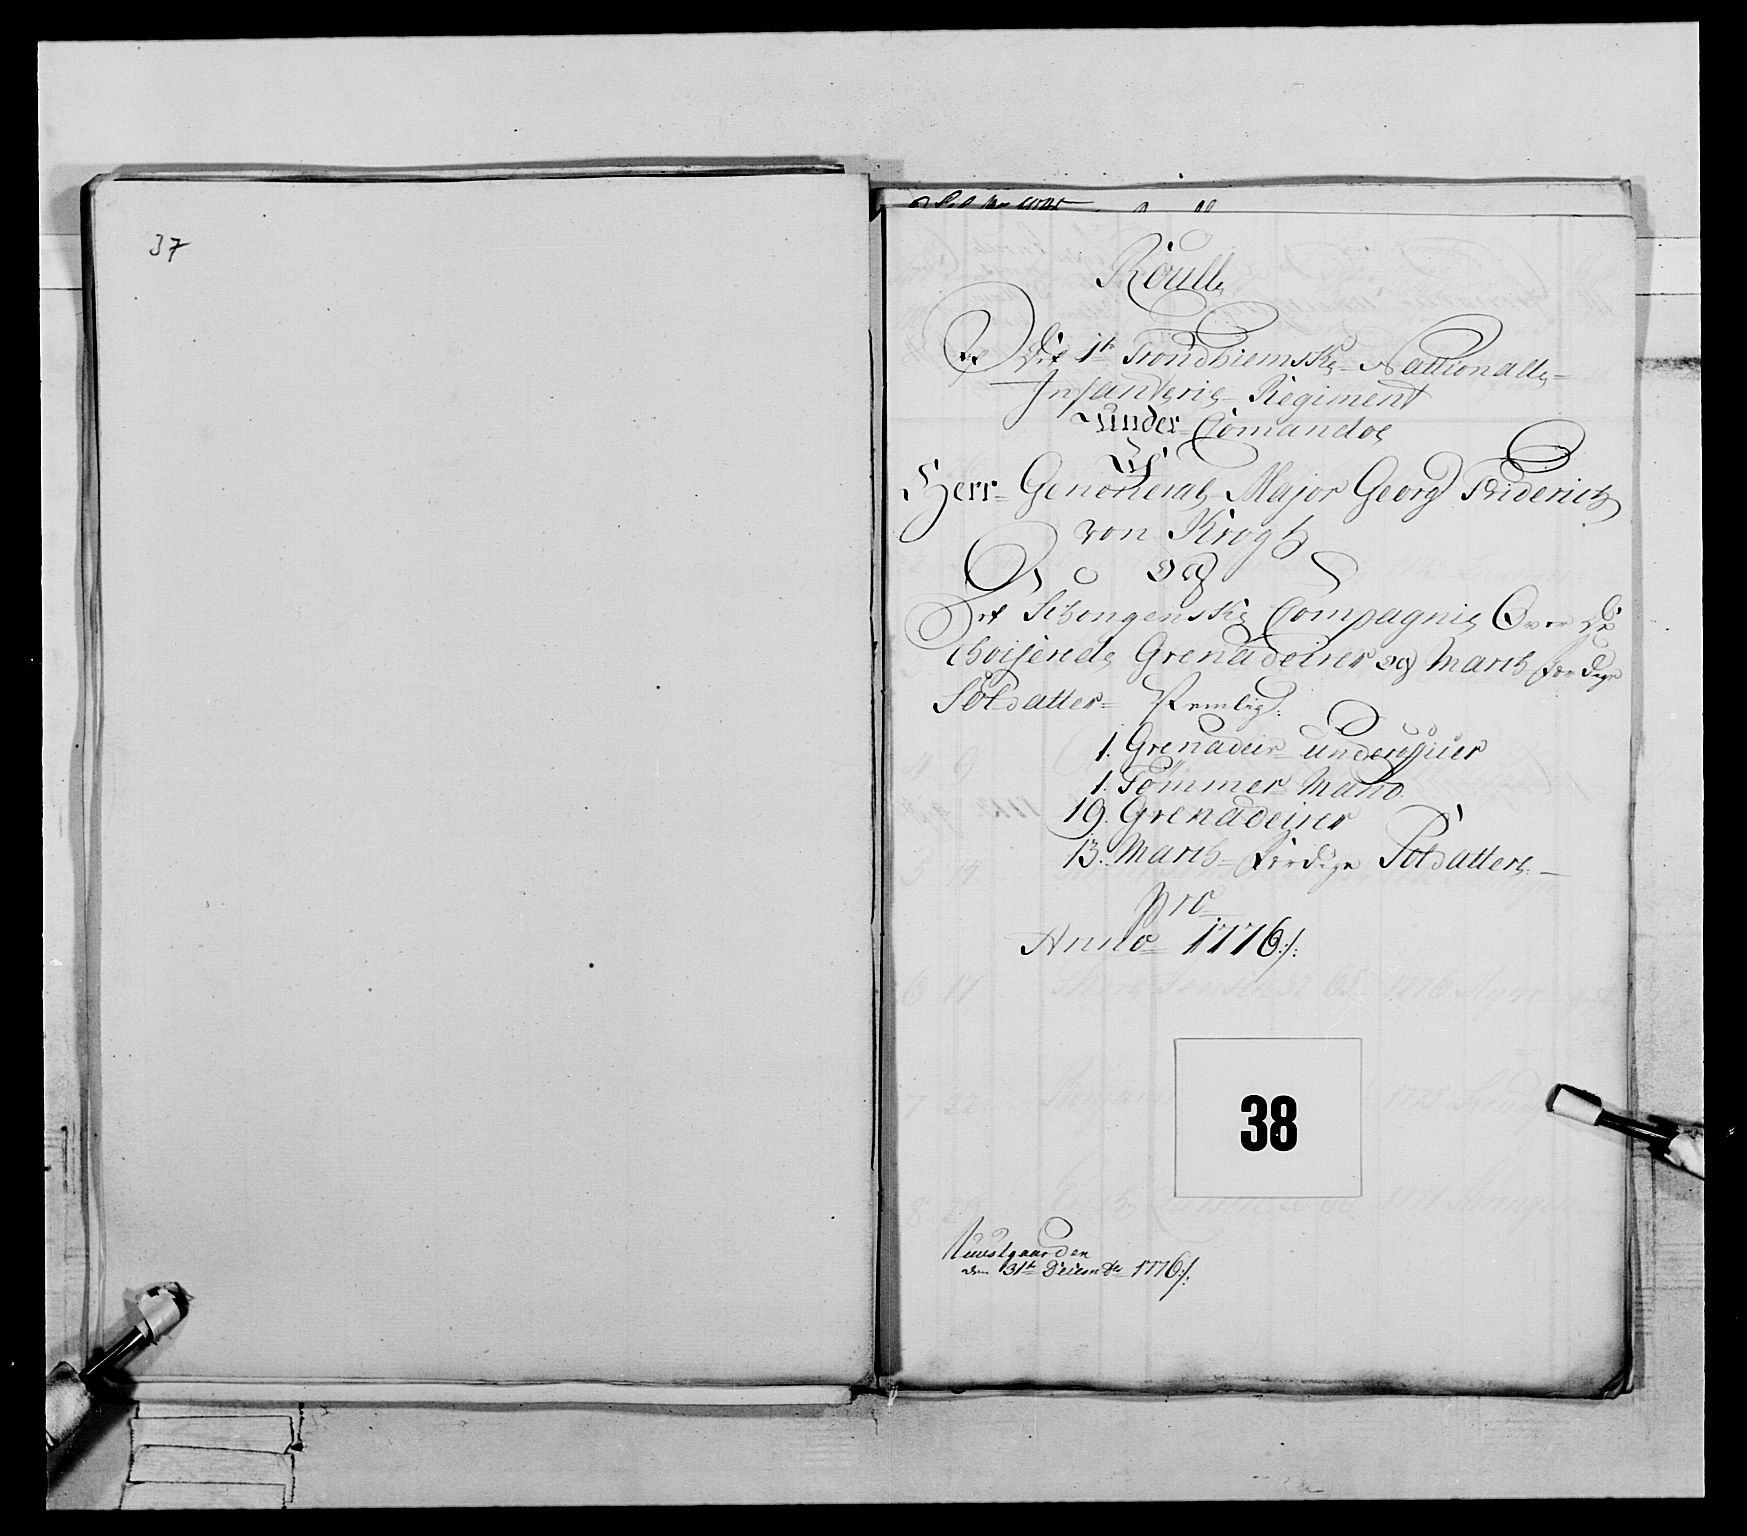 37
Roulle
Ved Det 1te Trondhiemske Nattionalle
Infanterie Regiment
under Comandoe
Af
Herr General Major Georg Friderich
von Krogh
og
Det Schongenske Compagnie Over De
Grenadeirer og March færdige
Soldatter Nemlig:
1. Grenadeir underofficer
1. Tømmer Mand
19. Grenadeirer
13. March færdige Soldatter
pro
Anno 1776
38
den 31te Decembr 1776